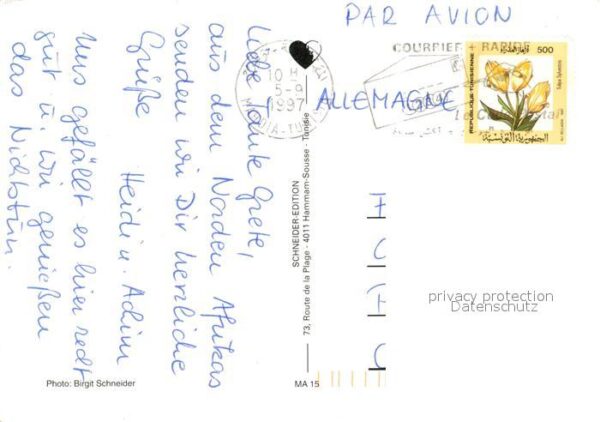 PAR AVION
COURRIER + RAPIDE
500
Tulipa Sylvestris
REPUBLIQUE TUNISIENNE
الجمهورية التونسية
10 H
5-9
1997
ALLEMAGNE
Liebe Tante Grete,
aus dem Norden Afrikas
senden wir Dir herzliche
Grüße Heidi u. Achim
Uns gefällt es hier recht
gut u. wir genießen
das Nichtstun.
SCHNEIDER-EDITION
73, Route de la Plage - 4011 Hammam-Sousse - Tunisie
privacy protection
Datenschutz
Photo: Birgit Schneider
MA 15